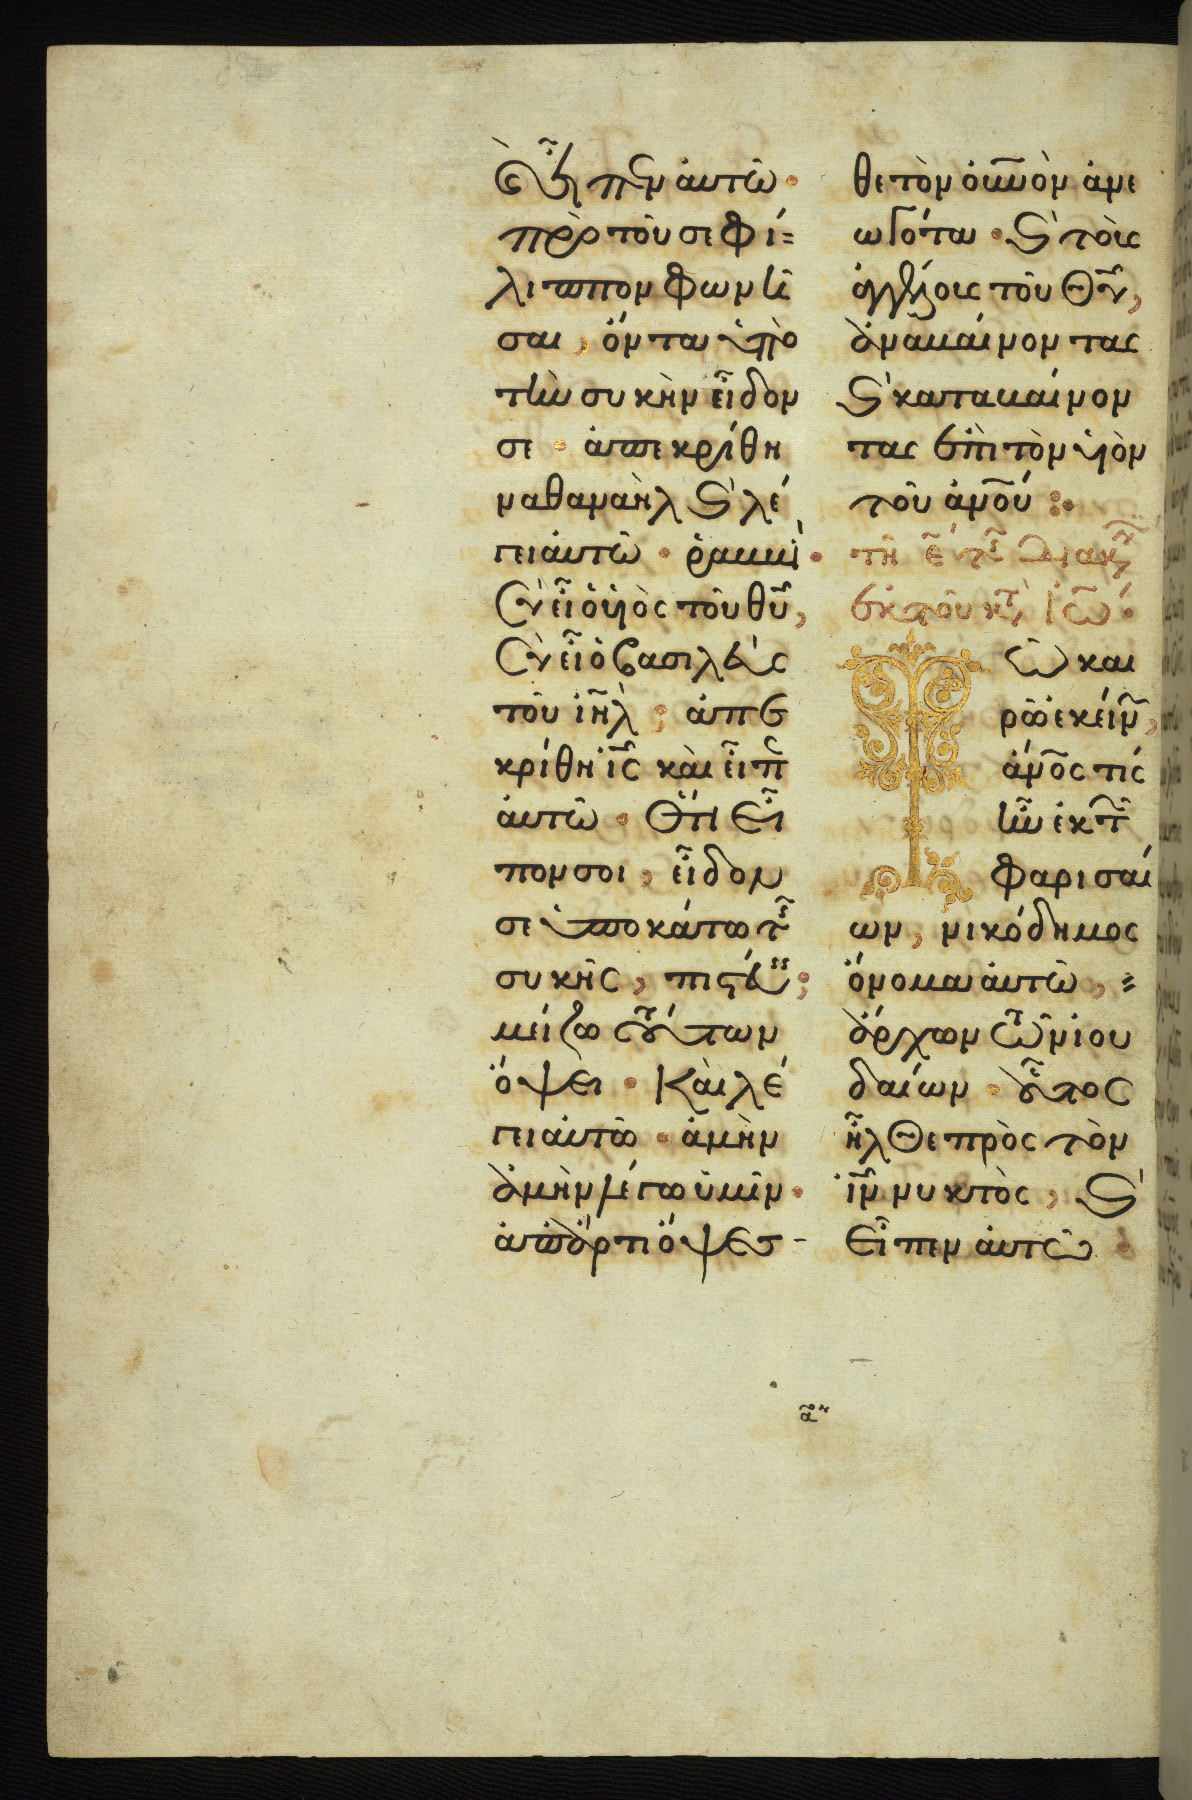 ἐ καὶ εἶπεν ἀυτῶ·
πρὸ τοῦ σε φί=
λιππον φωνῆ
σαι, ὄντα ὑπὸ
τὴν συκὴν εἶδον
σε· ἀπεκρίθη
ναθαναὴλ κ(αὶ) λέ
γει ἀυτῶ· ῥαββὶ·
Σὺ εἶ ὁ ὑιὸς τοῦ θῦ,
Σὺ εἶ ὁ βασιλεὺς
τοῦ ἰηλ· ἀπε
κρίθη ἰς καὶ εἶπ
ἀυτῶ· Ὅτι εἶ
πον σοι, εἶδον
σε ὑποκάτω τῆς
συκῆς, πιστεύεις;
μείζω τούτων
ὄψει· Καὶ λέ
γει ἀυτῶ· ἀμὴν
ἀμὴν λέγω ὑμῖν·
ἀπάρτι ὄψεσ-
θε τὸν ὀυνὸν ἀνε
ωγότα· κ(αὶ) τοὺς
ἀγγέλους τοῦ Θῦ,
ἀναβαίνοντας
κ(αὶ) καταβαίνον
τας ἐπὶ τὸν ὑιὸν
τοῦ ἀνού:·
τῆ ε τῆς διακ
ἐκ τοῦ κτ Ἰω·
Τῶ και
ρῶ ἐκείν,
ἀνος τίς
ἦν ἐκ τῶν
φαρισαί
ων, νικόδημος
ὄνομα ἀυτῶ,=
ἄρχων τῶν ἰου
δαίων· οὗτος
ἦλθε πρὸς τὸν
ἰν νυκτὸς, κ(αὶ)
εἶπεν ἀυτῶ·